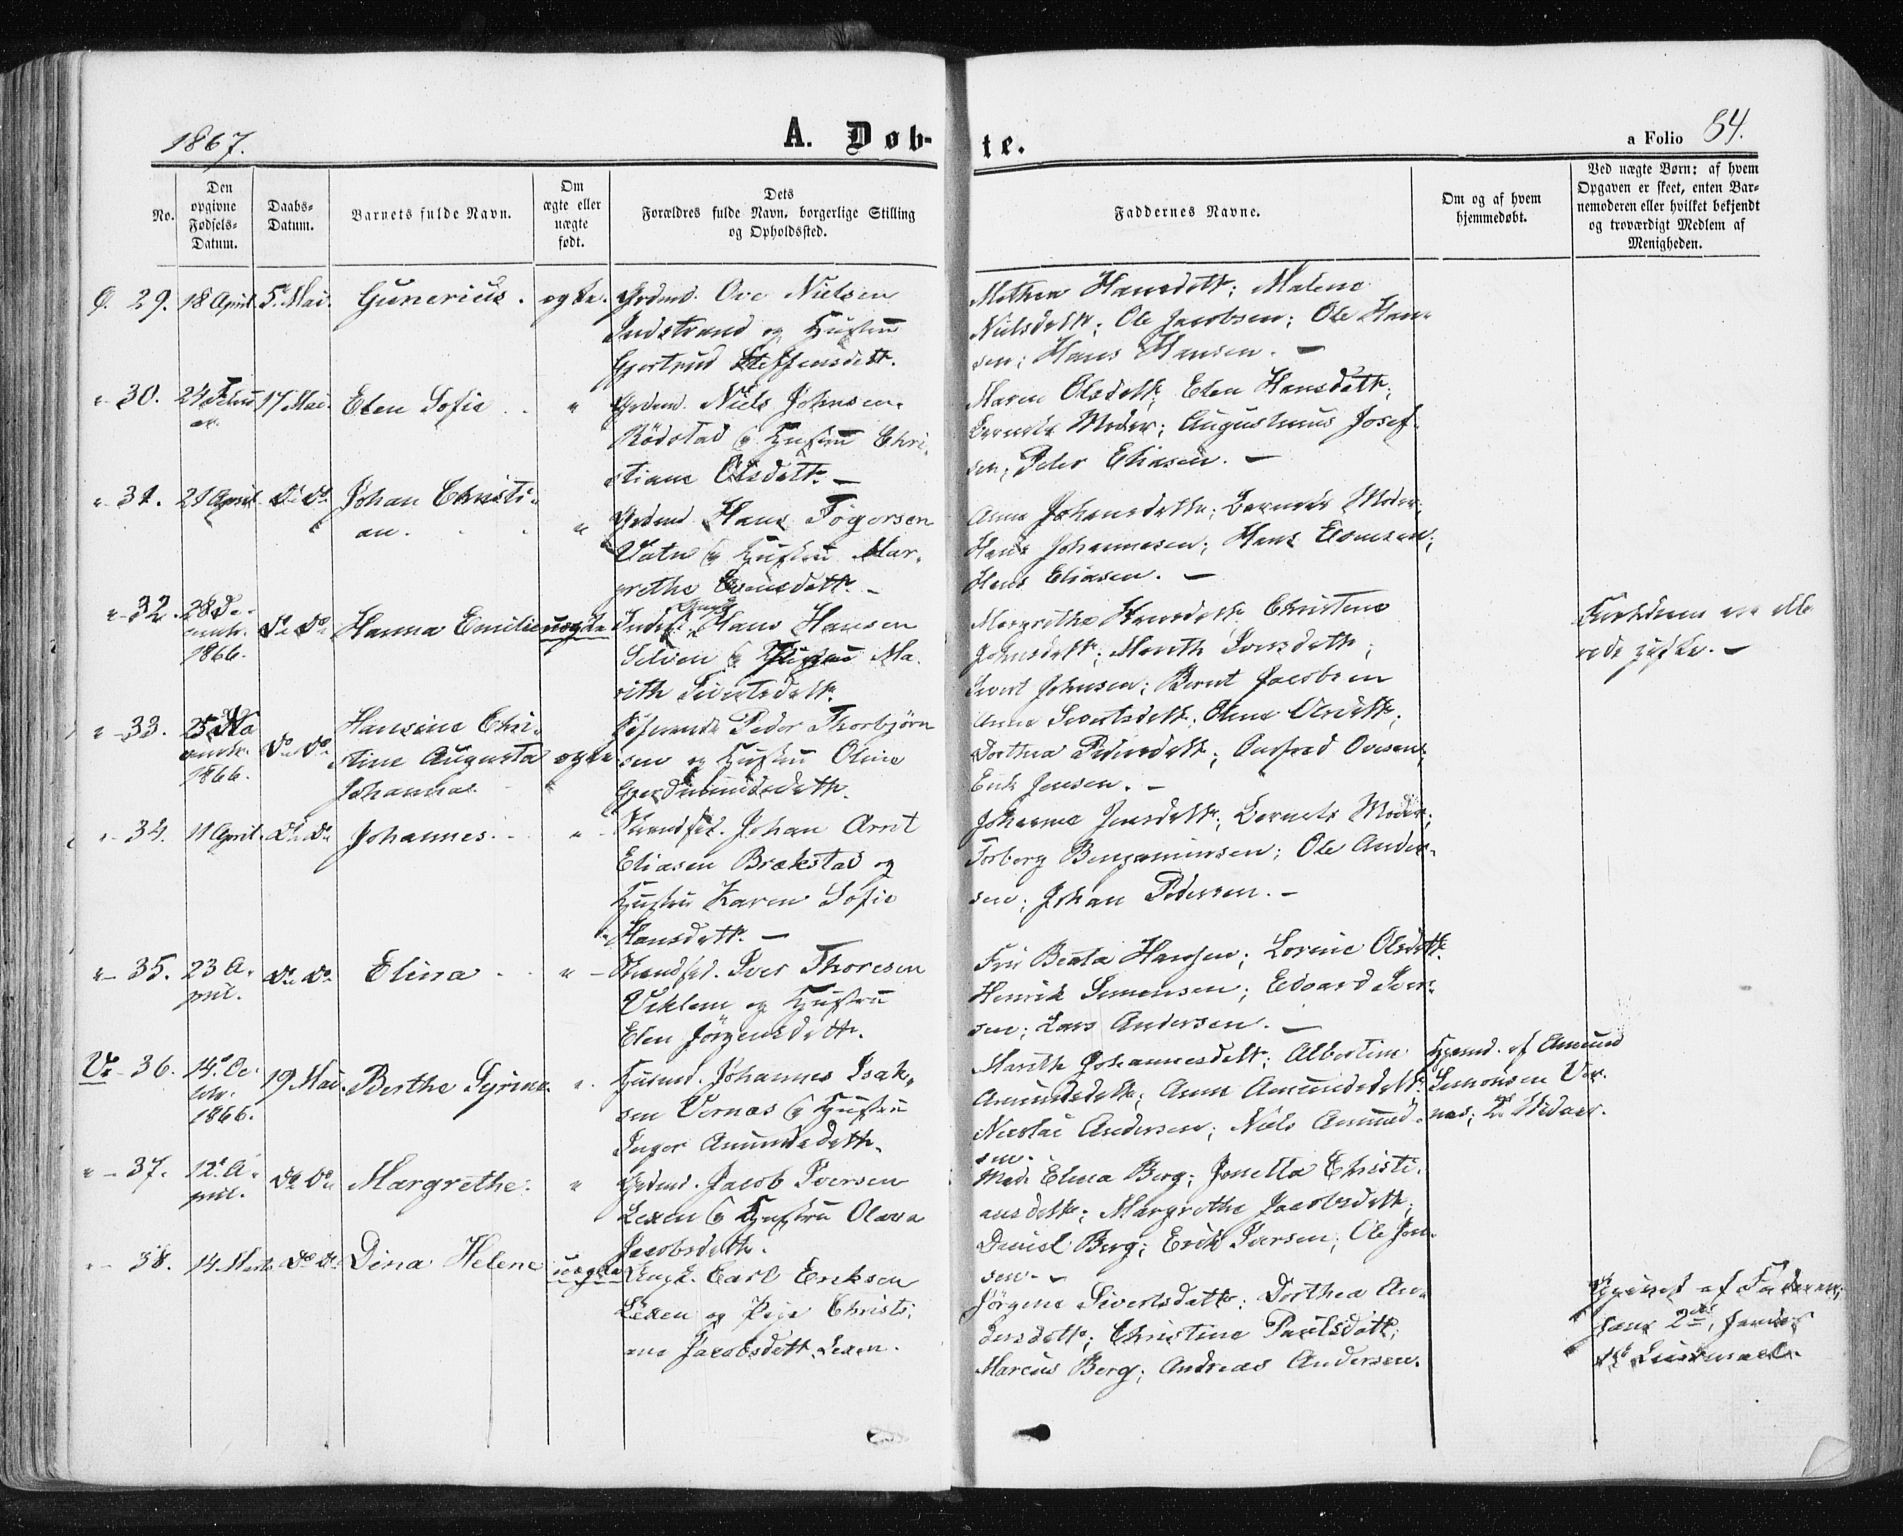 1867.
A. Døb-
te.
a Folio 84.
No.
Den opgivne Fødsels-Datum.
Daabs-Datum.
Barnets fulde Navn.
Om ægte eller uægte født.
Dets Forældres fulde Navn, borgerlige Stilling og Opholdssted.
Faddernes Navne.
Om og af hvem hjemmedøbt.
Ved uægte Børn: af hvem Opgaven er skeet, enten Bar-nemoderen eller hvilket bekjendt og troværdigt Medlem af Menigheden.
29. 18 April. 5. Mai. Gunerius. ægte. Grdmd. Ove Nielsen
Indstrand og Hustru
Gjertrud Steffensdatt.
Mathea Hansdatt; Malene
Nielsdatt; Ole Jacobsen; Ole Han-
sen; Hans Hansen. —
" 30. 24 Febru 17 Mai. Elen Sofie " Grdmd. Niels Johnsen
ar.
Rödstad og Hustru Chri-
stiane Olsdatt. —
Maren Olsdatt; Elen Hansdatt;
Barnets Moder; Augustinus Josef-
sen; Peter Eliasen. —
" 31. 21 April do do Johan Christi-
an. " Grdmd Hans
Vatn og Hustru Mar-
grethe
Anne Johansdatt; Barnets Moder;
Hans Johannesen; Hans
Hans Eliasen. —
" 32. 28 De-
cmbr.
1866. do do Hanna Emilie uægte Inds. Hans Hansen
Selven og Ma-
rith Sivertsdatt.
Margrethe Hansdatt Christine
Johnsdatt; Marith Larsdatt;
Sivert Johnsen; Bernt Jacobsen
Forældrene ere alle
rede gifte. —
" 33. 25
1866. do do Hansine Chri-
stine Augusta
Johanna. ægte Peder Thorbjørn
sen og Hustru Oline
Anne Sivertsdatt; Olina Olsdatt;
Dorthea Pedersdatt; Ovesen;
Erik Jensen. —
" 34. 11 April. do do Johannes. " Strandsid. Johan Arnt
Eliasen Brækstad og
Hustru Karen Sofie
Hansdatt. —
Johanna Jensdatt; Barnets Moder;
Torberg Benjaminsen; Ole Ander-
sen; Johan Pedersen. —
" 35. 23 A-
pril. do do Elina " Strandsid. Iver Thoresen
Viklem og Hustru
Elen Jörgensdatt.
Fru Beata Hansen; Lorine Olsdatt
Henrik Simonsen; Edvard Iver-
sen; Lars Andersen. —
36. 14. De
cbr.
1866. 19 Mai. Berthe Syrine " Husmd. Johannes Isak-
sen Vernæs og Hustru
Inger Amundsdatt.
Marith Johannesdatt; Albertine
Amundsdatt; Anne Amundsdatt
Nicolai Andersen; Niels Amund-
sen.
Hjemd. af Amund
Simonsen Ver-
næs;
" 37. 12. A-
pril. do do Margrethe. " Grdmd. Jacob Iversen
Lexen og Hustru Olava
Jacobsdatt.
Mad. Elina Berg; Jonetta Christi-
ansdatt; Margrethe Jacobsdatt;
Daniel Berg; Erik Iversen; Ole Jen-
sen. —
" 38. 14. Marts do do Dina Helene uægte Ungk. Carl Eriksen
Lexen og Pige Christi-
ane Jacobsdatt. Lexen.
Jörgine Sivertsdatt; Dorthea An-
dersdatt; Christine Paulsdatt;
Marcus Berg; Andreas Andersen.
af Faderen;
hans 2det, hendes
1st Leiermaal.